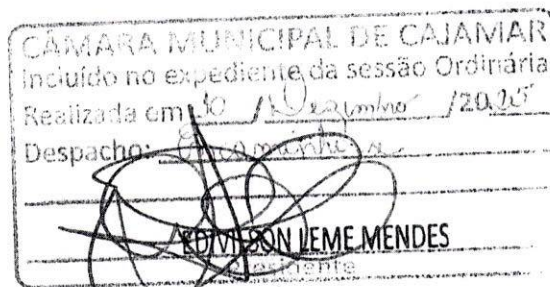 CÂMARA MUNICIPAL DE CAJAMAR
Incluído no expediente da sessão Ordinária
Realizada em 10 / Dezembro /2025
Despacho: Encaminhe-se
EDIVILSON LEME MENDES
Presidente